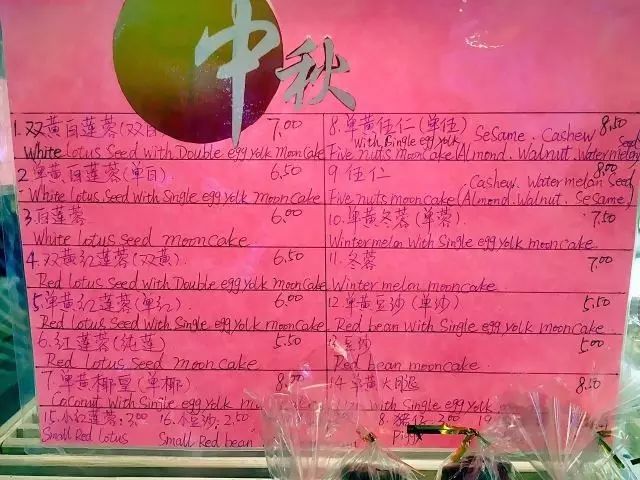 中秋
1. 双黄白莲蓉(双白 7.00
White Lotus Seed with Double egg yolk mooncake
2 单黄白莲蓉(单白) 6.50
White Lotus Seed with Single egg yolk mooncake
3 白莲蓉 6.00
White lotus seed mooncake
4. 双黄红莲蓉(双黄). 6.50
Red lotus Seed with Double egg yolk mooncake
5 单黄红莲蓉(单红) 6.00
Red Lotus Seed with Single egg yolk mooncake
6. 红莲蓉(纯莲) 5.50
Red Lotus Seed Mooncake
7. 单黄椰皇(单椰)
Coconut with Single egg yolk mooncake
15. 小红莲蓉: 3.00 16. 小豆沙: 2.50
Small Red lotus Small Red bean
8. 单黄伍仁(单伍) Sesame. Cashew 8.50
with Single egg yolk
Five nuts mooncake (Almond. Walnut. Watermelon Seed
9 伍仁 Cashew. Watermelon Seed 8.00
Five nuts mooncake (Almond. Walnut. Sesame)
10. 单黄冬蓉(单蓉). 7.50
Winter melon with Single egg yolk mooncake
11. 冬蓉 7.00
Winter melon mooncake
12 单黄豆沙(单沙) 5.50
Red bean with Single egg yolk mooncake
豆沙 5.00
Red bean mooncake
14. 单黄大 8.50
with Single egg yolk
8. 猪 3.00 19